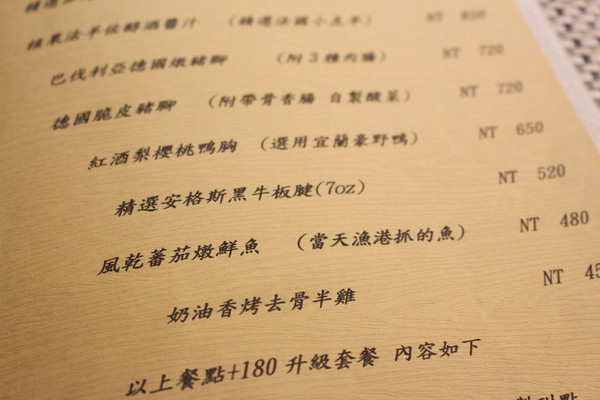 精選
核果法羊佐醇酒醬汁 (精選法國小羔羊) NT 850
巴伐利亞德國燉豬腳 (附3種肉腸) NT 720
德國脆皮豬腳 (附帶骨香腸 自製酸菜) NT 720
紅酒梨櫻桃鴨胸 (選用宜蘭豪野鴨) NT 650
精選安格斯黑牛板腱(7oz) NT 520
風乾蕃茄燉鮮魚 (當天漁港抓的魚) NT 480
奶油香烤去骨半雞 NT 45
以上餐點+180 升級套餐 內容如下